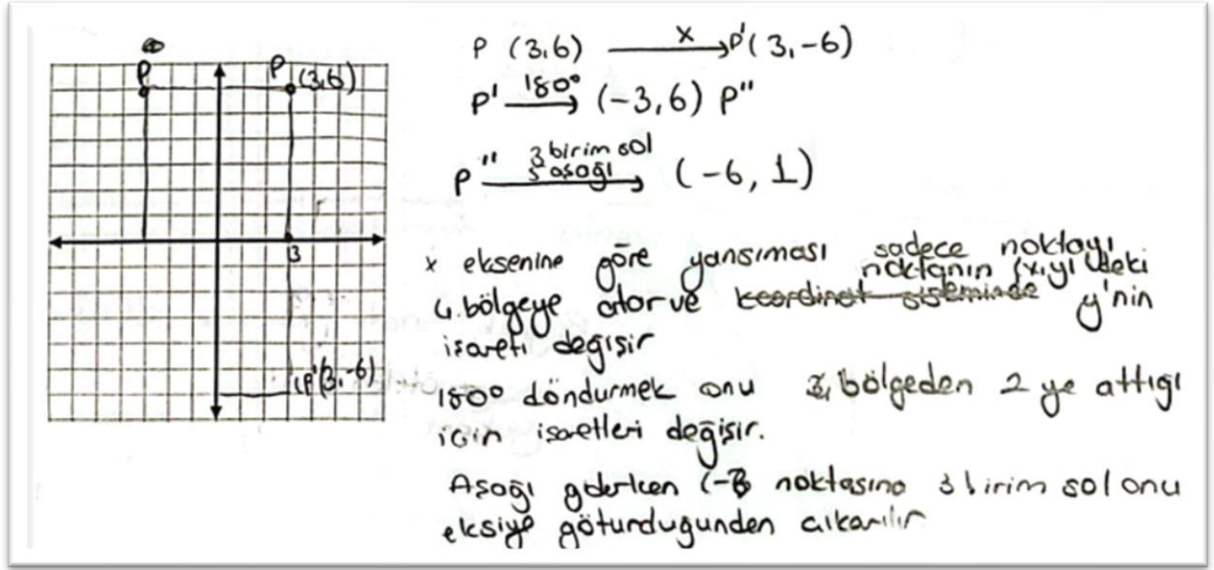 P
P (3,6)
3
P'(3,-6)
P (3,6) x P'(3,-6)
P' 180° (-3,6) P"
P" 3 birim sol
5 aşağı (-6, 1)
x eksenine göre yansıması sadece noktayı
4.bölgeye atar ve koordinat sisteminde noktanın (x,y) deki y'nin
işareti değişir
180° döndurmek onu bölgeden 2 ye attığı
için işaretleri değişir.
Aşağı giderken noktasına 3 birim sol onu
eksiye göturduğunden çıkarılır